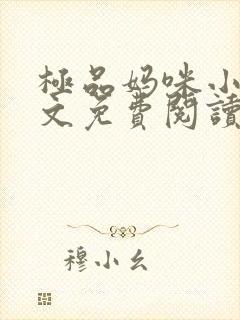 極品妈咪小
文免費閱讀
穆小幺